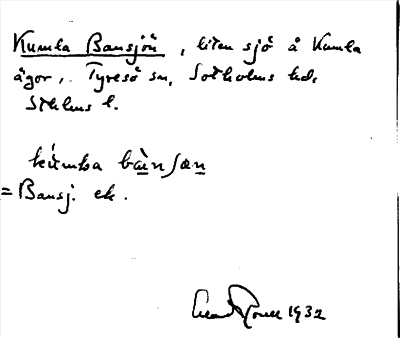 Kumla Bansjön, liten sjö å Kumla
ägor, Tyresö sn, Sotholms hd,
Sthlms l.
kúmba bànʃøn
= Bansj. ek.
1932